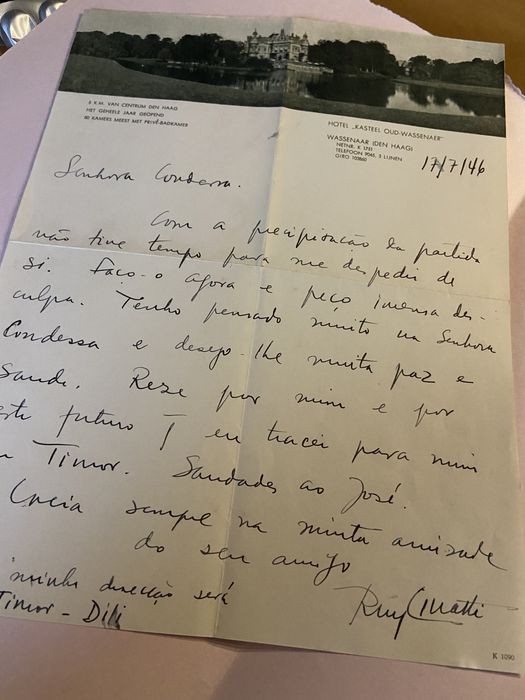 5 K.M. VAN CENTRUM DEN HAAG
HET GEHEELE JAAR GEOPEND
80 KAMERS MEEST MET PRIVÉ-BADKAMER
HOTEL „KASTEEL OUD-WASSENAER”
WASSENAAR (DEN HAAG)
NETNR. K 1751
TELEFOON 9045, 3 LIJNEN
GIRO 103860
17/7/46
Senhora Condessa.
Com a precipitação da partida
não tive tempo para me despedir de
si. Faço-o agora e peço imensa des-
culpa. Tenho pensado muito na Senhora
Condessa e desejo-lhe muita paz e
Saude. Reze por mim e por
este futuro q eu tracei para mim
Timor. Saudades ao José.
Creia sempre na minha amizade
do seu amigo
Ruy Cinatti
minha direcção será
Timor - Dili
K 1090